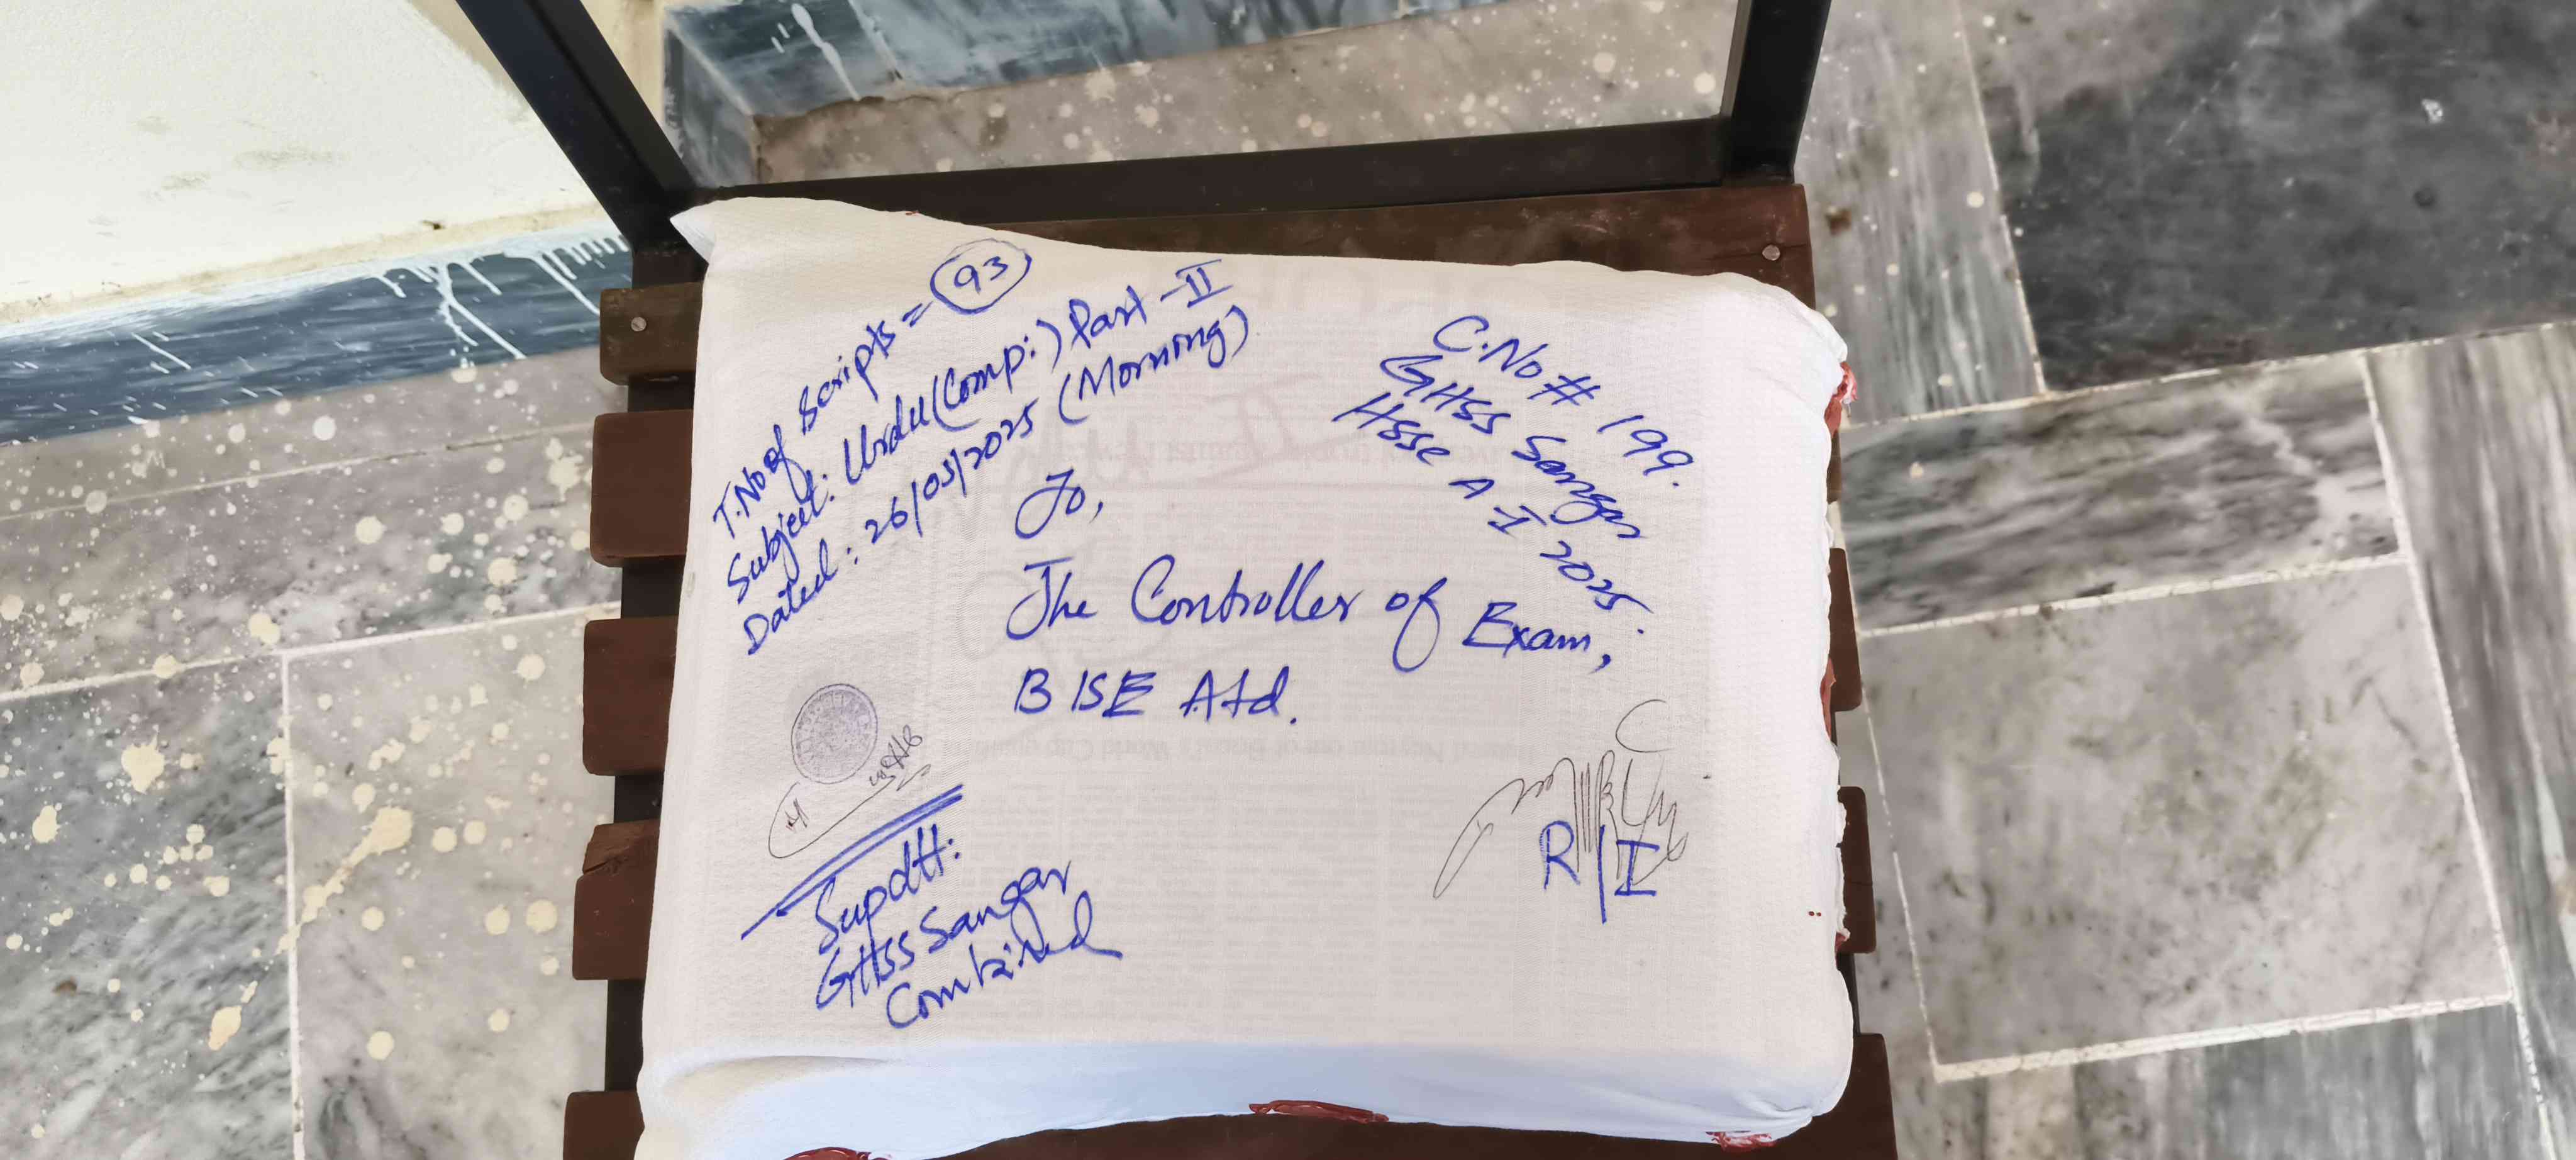 T.No of Scripts = 93
Subject: Urdu (Comp:) Part-II
Dated: 26/05/2025 (Morning)
C.No # 199.
GHSS Sangar
HSSC A-I 2025.
To,
The Controller of Exam,
BISE Atd.
Supdtt:
GHSS Sangar
Combined
R/I